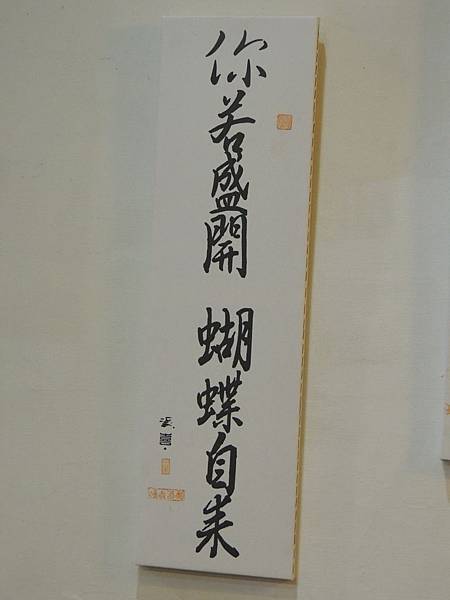 你若盛開 蝴蝶自来